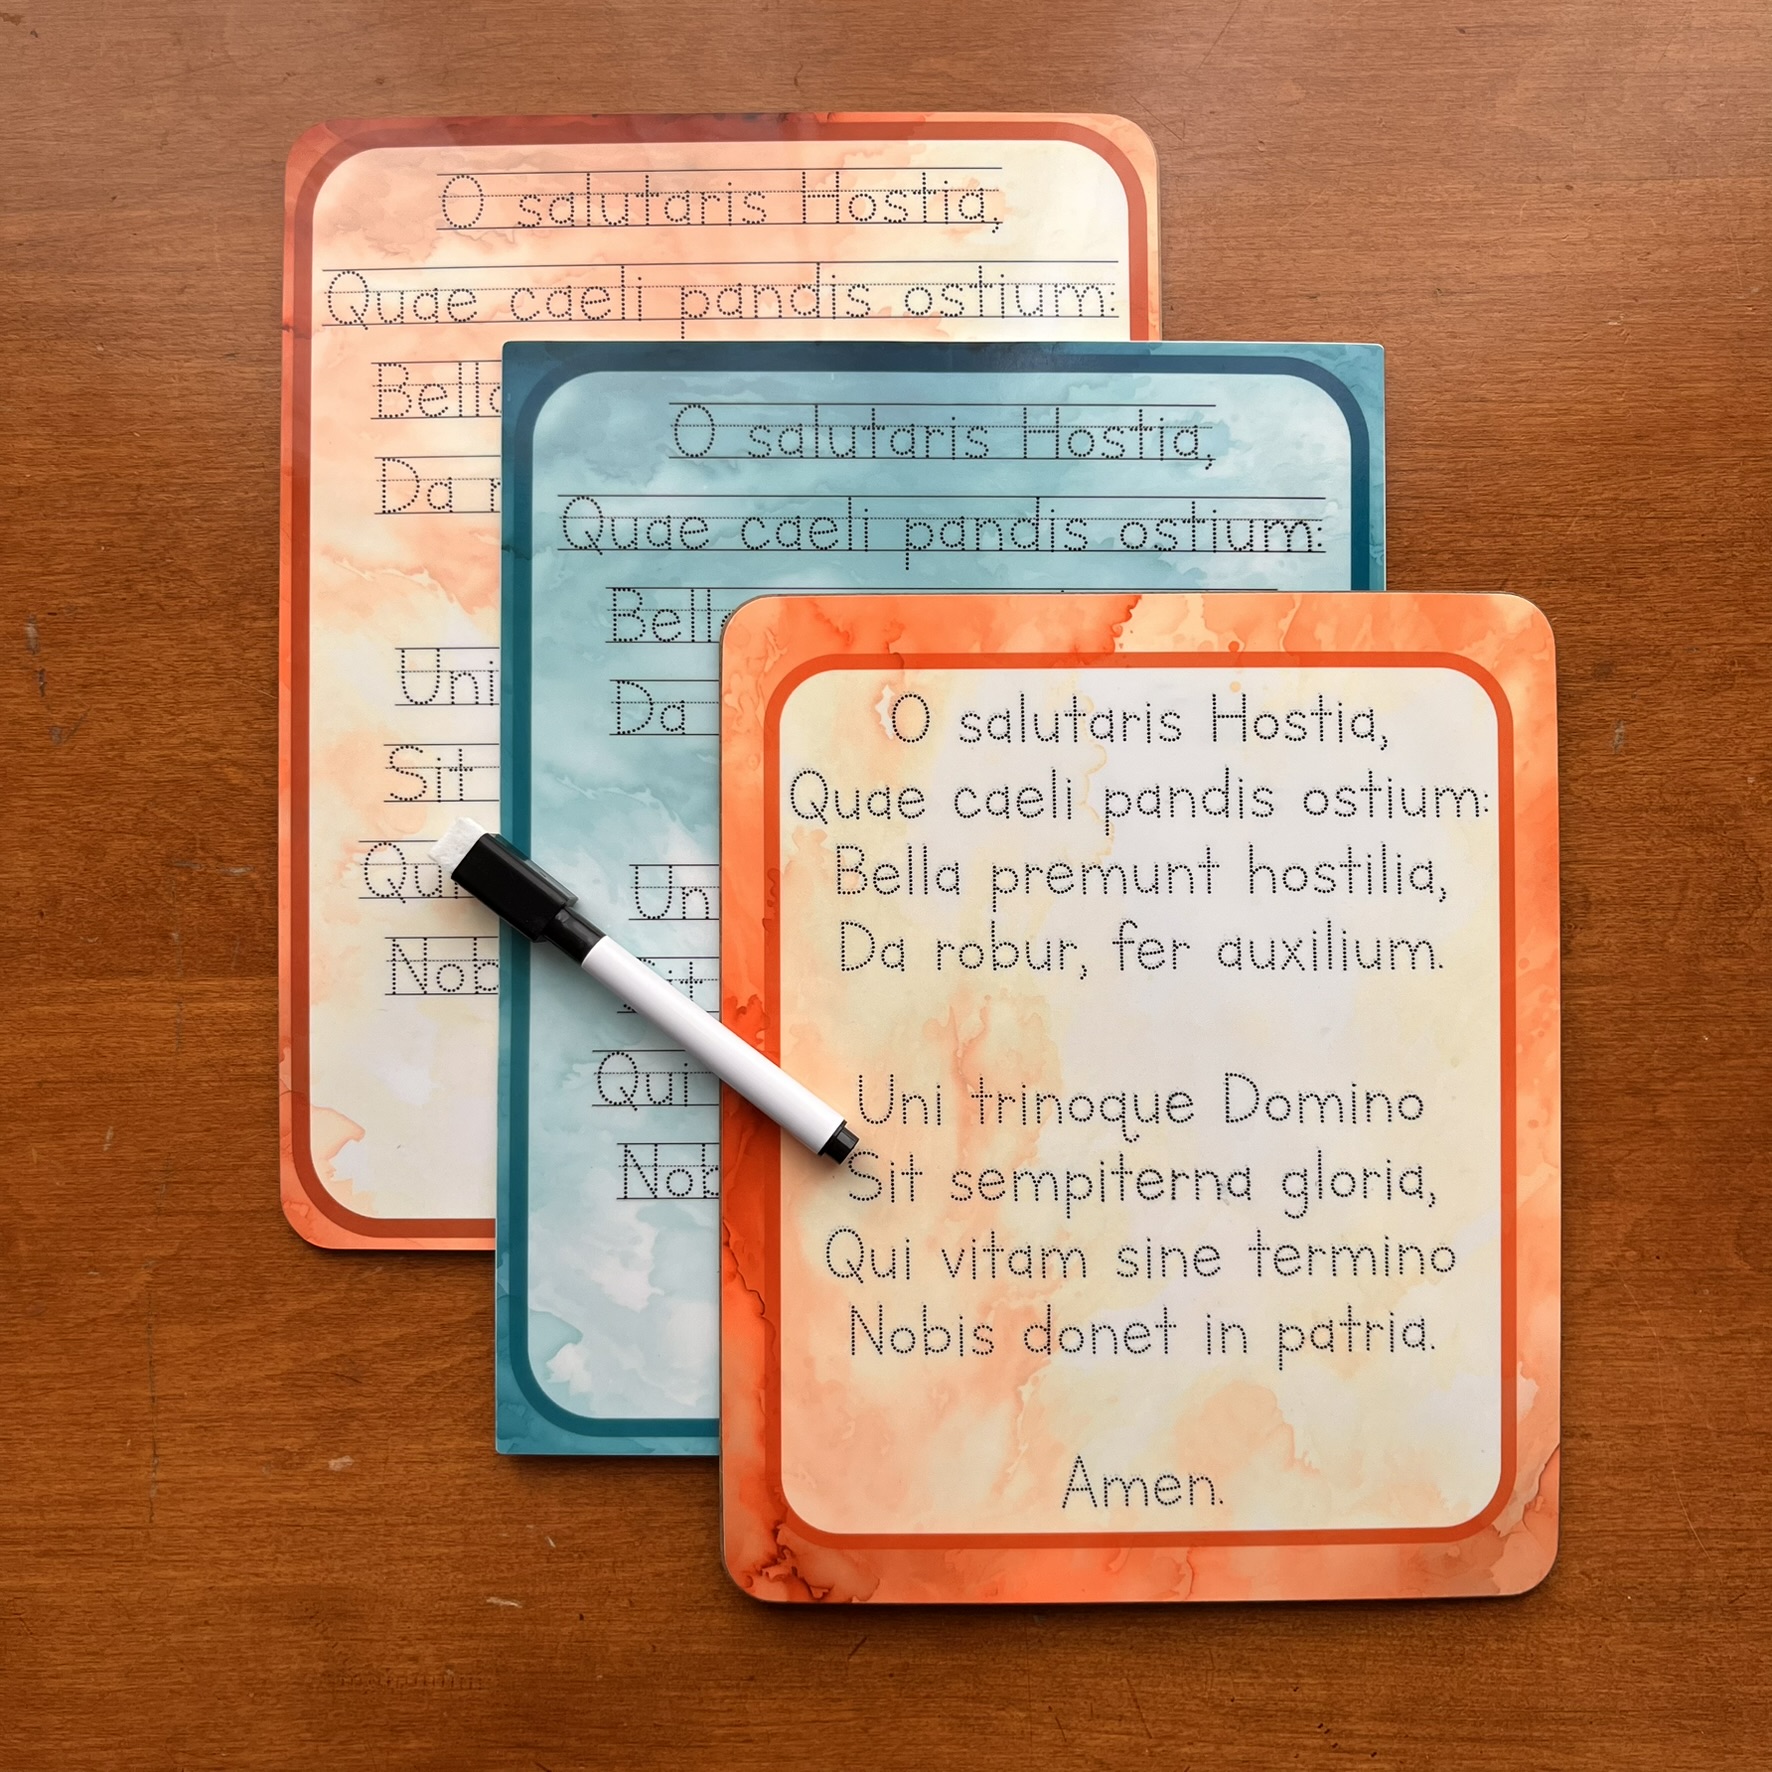 O salutaris Hostia,
Quae caeli pandis ostium:
Bella
Da
Uni
Sit
Qui
O salutaris Hostia,
Quae caeli pandis ostium:
Bella
Da
Qui
O salutaris Hostia,
Quae caeli pandis ostium:
Bella premunt hostilia,
Da robur, fer auxilium.
Uni trinoque Domino
Sit sempiterna gloria,
Qui vitam sine termino
Nobis donet in patria.
Amen.